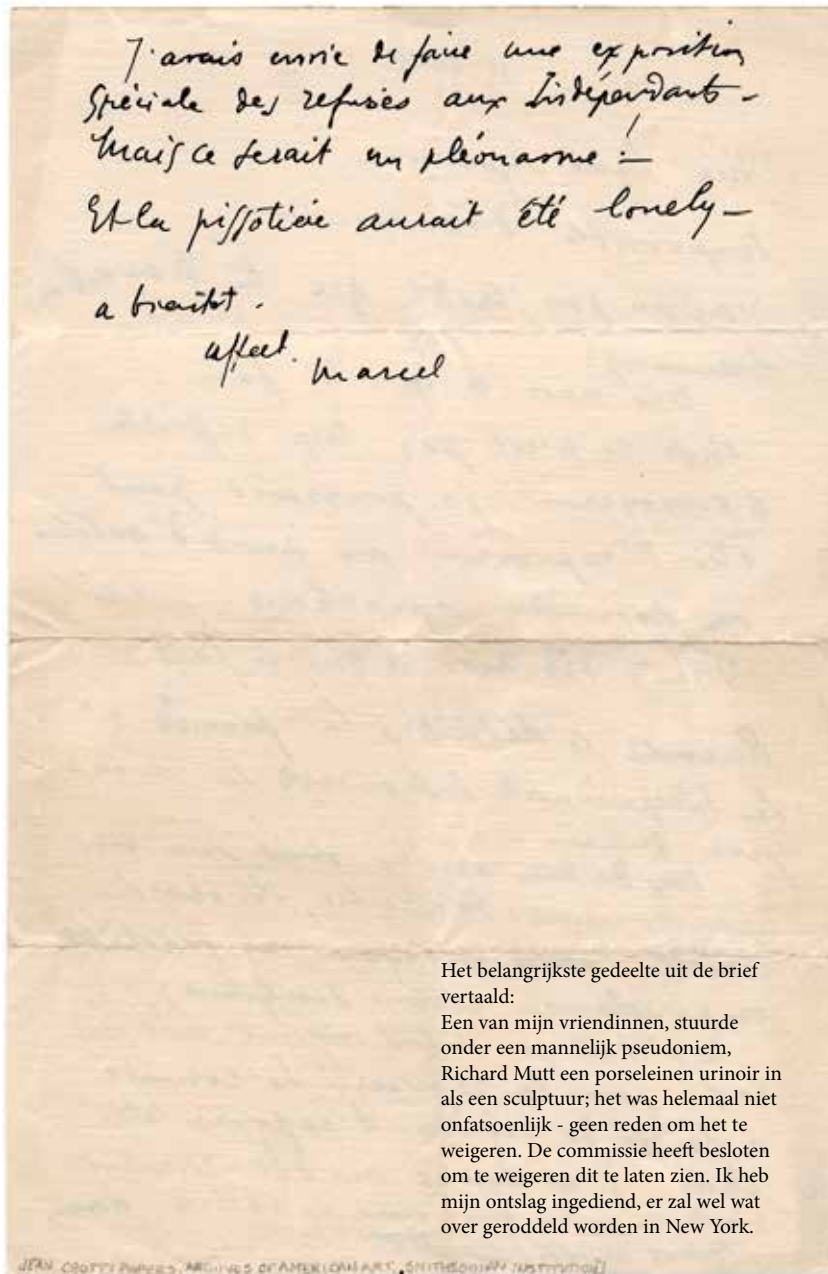 J'avais envie de faire une exposition
spéciale des refusés aux Indépendants –
Mais ce serait un pléonasme! –
Et la pissotière aurait été lonely –
a bientôt.
affect.
Marcel
Het belangrijkste gedeelte uit de brief
vertaald:
Een van mijn vriendinnen, stuurde
onder een mannelijk pseudoniem,
Richard Mutt een porseleinen urinoir in
als een sculptuur; het was helemaal niet
onfatsoenlijk - geen reden om het te
weigeren. De commissie heeft besloten
om te weigeren dit te laten zien. Ik heb
mijn ontslag ingediend, er zal wel wat
over geroddeld worden in New York.
JEAN CROTTI PAPERS, ARCHIVES OF AMERICAN ART, SMITHSONIAN INSTITUTION]